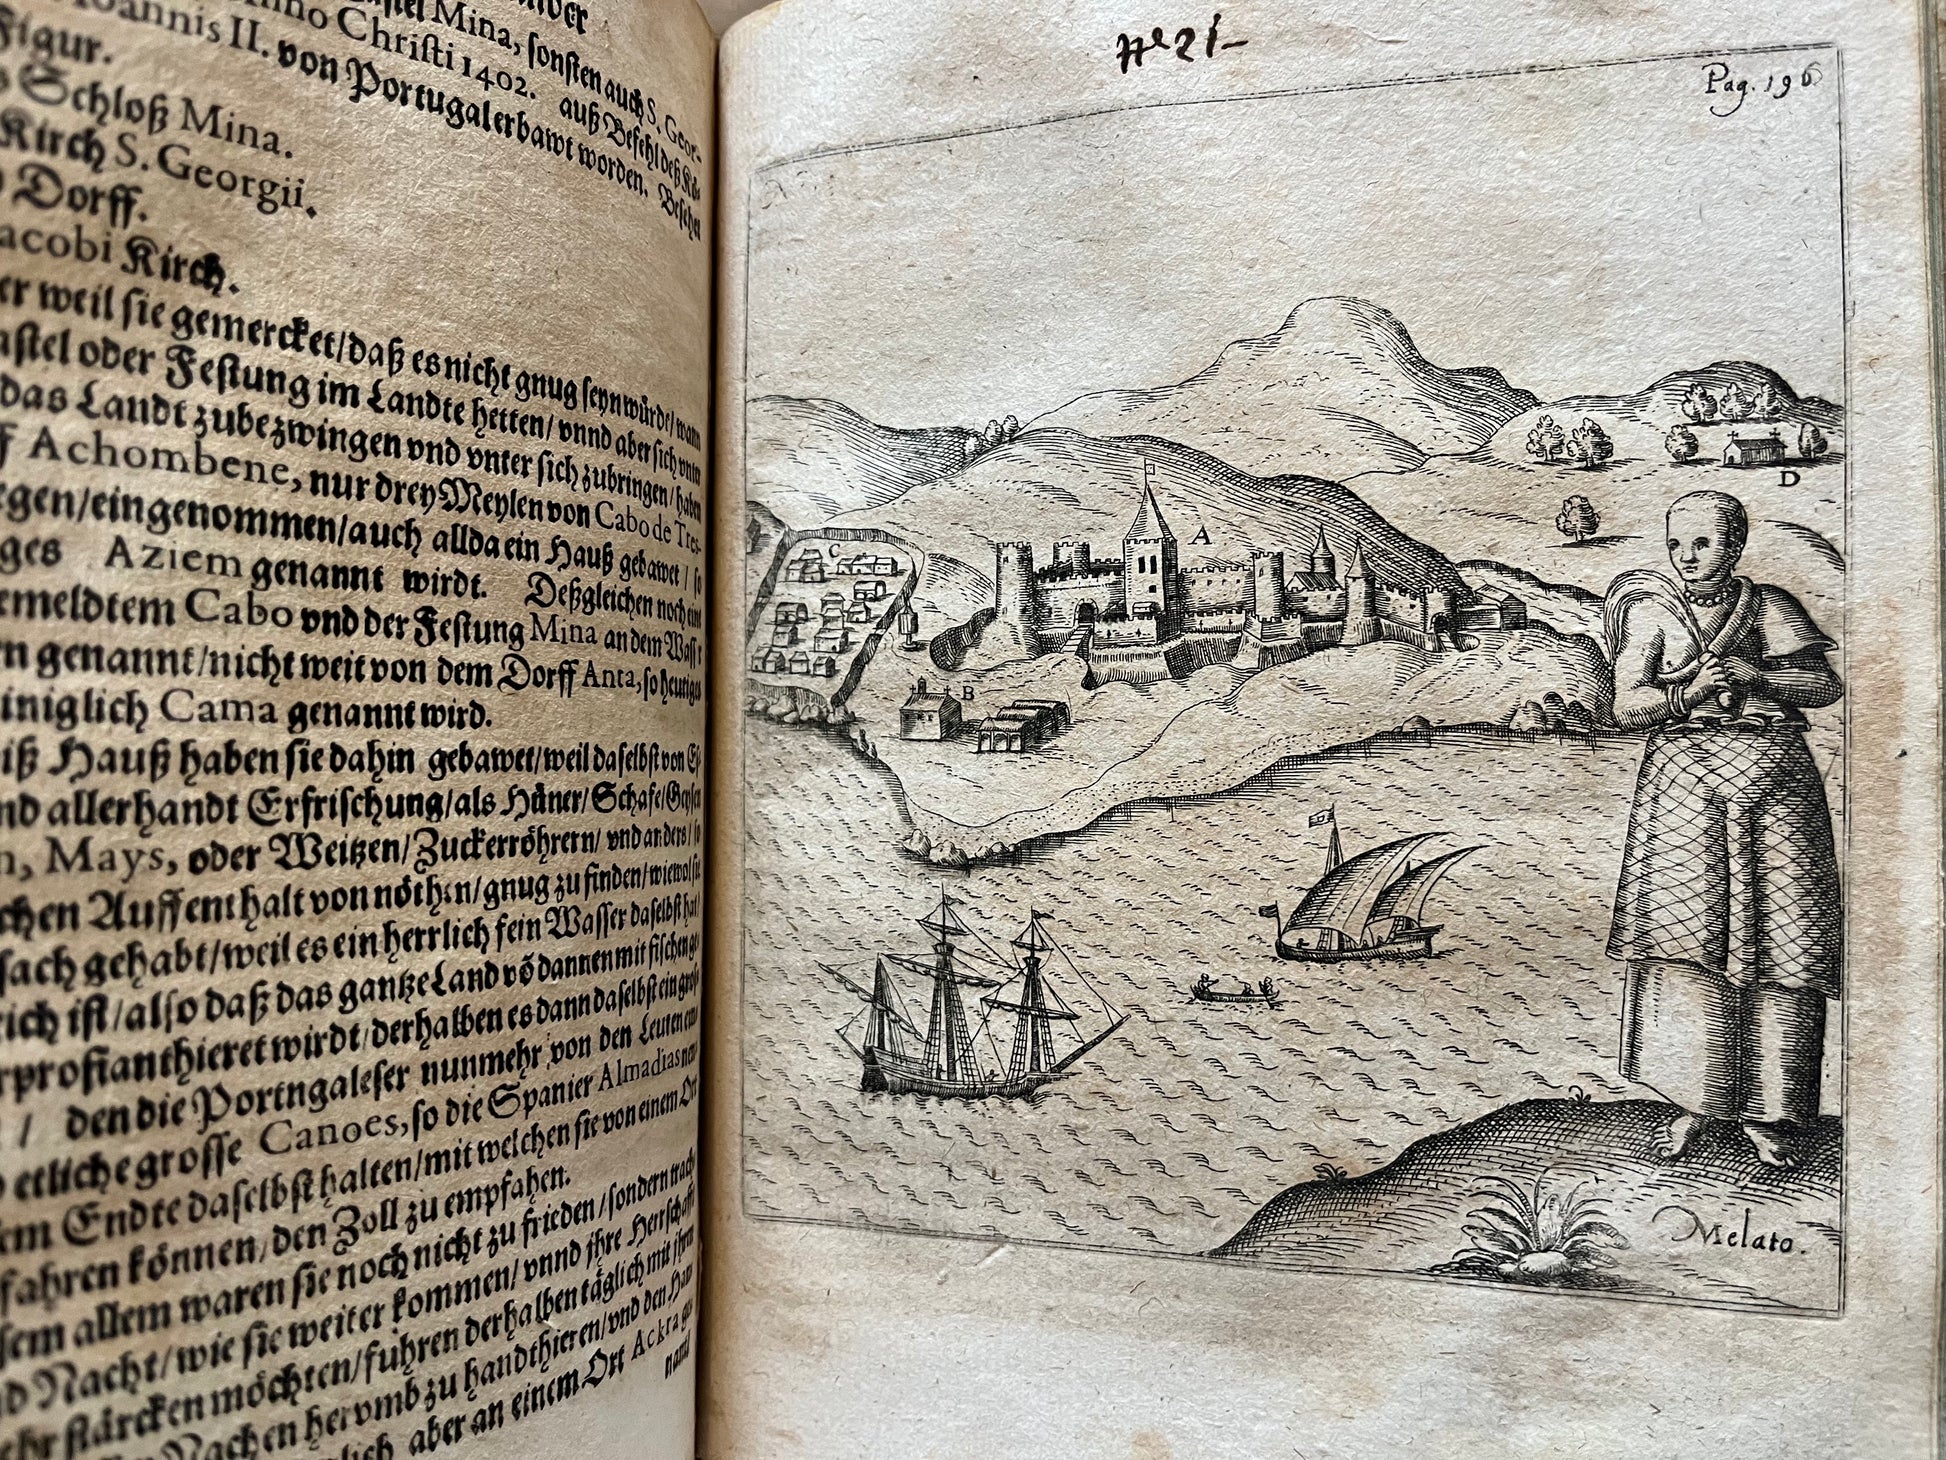 Castel Mina, sonsten auch S. Geor-
Anno Christi 1402. auß Befehl deß Kö-
Joannis II. von Portugal erbawt worden. Besehen
Figur.
Schloß Mina.
Kirch S. Georgii.
Dorff.
Jacobi Kirch.
er weil sie gemercket/ daß es nicht gnug seyn würde/ wann
astel oder Festung im Landte hetten/ vnnd aber sich vnter
das Landt zubezwingen vnd vnter sich zubringen/ haben
ff Achombene, nur drey Meylen von Cabo de Tres-
egen/ eingenommen/ auch allda ein Hauß gebawet/ so
ges Aziem genannt wirdt. Deßgleichen noch eins
emeldtem Cabo vnd der Festung Mina an dem Wass r
rn genannt/ nicht weit von dem Dorff Anta, so heutiges
iniglich Cama genannt wird.
iß Hauß haben sie dahin gebawet/ weil daselbst von
nd allerhandt Erfrischung/ als Hüner/ Schafe/ Geyssen
n, Mays, oder Weitzen/ Zuckerröhren/ vnd anders/ so
chen Auffenthalt von nöthen/ gnug zu finden/ wiewol sie
sach gehabt/ weil es ein herrlich fein Wasser daselbst hat/
reich ist/ also daß das gantze Land võ dannen mit fischen ge-
rprofianthieret wirdt/ derhalben es dann daselbst ein groß
/ den die Portngaleser nunmehr von den Leuten
etliche grosse Canoes, so die Spanier Almadias nen-
em Endte daselbst halten/ mit welchen sie von einem Ort
fahren können/ den Zoll zu empfahen.
sem allem waren sie noch nicht zu frieden/ sondern nach
nd Nacht/ wie sie weiter kommen/ vnnd jhre Herrschafft
ehr stärcken möchten/ fuhren derhalben täglich mit jhren
Nachen herumb zu handthieren/ vnd den Han-
lich aber an einem Ort Ackra ge-
nant/
N° 21-
Pag. 196
A
C
B
D
Melato.